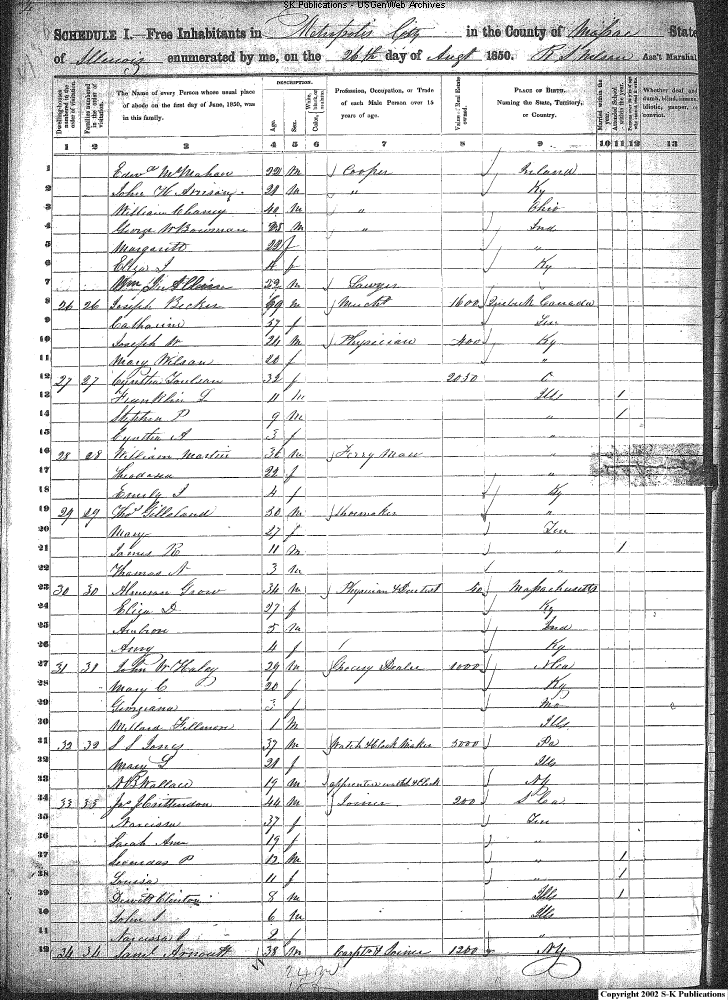 S-K Publications - USGenWeb Archives
SCHEDULE I.—Free Inhabitants in Metropolis City in the County of Massac State
of Illinois enumerated by me, on the 26th day of Augt 1850. Ass't Marshal
Dwelling-houses numbered in the order of visitation.
Families numbered in the order of visitation.
The Name of every Person whose usual place of abode on the first day of June, 1850, was in this family.
DESCRIPTION.
Age.
Sex.
Color, White, black, or mulatto.
Profession, Occupation, or Trade of each Male Person over 15 years of age.
Value of Real Estate owned.
PLACE OF BIRTH.
Naming the State, Territory, or Country.
Married within the year.
Attended School within the year.
Whether deaf and dumb, blind, insane, idiotic, pauper, or convict.
1 2 3 4 5 6 7 8 9 10 11 12 13
1 Edwd McMahan 22 m Cooper Ireland
2 John H 28 m " Ky
3 William Chaney 40 m " Ohio
4 George W Bowman 28 m " Ind
5 Margarett 22 f "
6 Eliza J 4 f Ky
7 Wm 22 m Lawyer
8 26 26 Joseph Becker 69 m Mercht 1600 Quebeck Canada
9 Catharine 57 f Ten
10 Joseph W 24 m Physician 400 Ky
11 Mary Wilson 20 f "
12 27 27 32 f 2050
13 Franklin D 11 m Ills 1
14 Stephen P 9 m " 1
15 Cynthia A 3 f "
16 28 28 William Martin 36 m Ferry Man "
17 22 f "
18 Emily J 4 f Ky
19 29 29 Thos Gilleland 30 m Shoemaker "
20 Mary 27 f Ten
21 James R 11 m " 1
22 Thomas A 3 m "
23 30 30 Almeran Grow 34 m Physician & Dentist 40 Massachusetts
24 Eliza D 27 f Ky
25 5 m Ind
26 Amy 4 f Ky
27 31 31 John W Haley 29 m Grocery Dealer 1000
28 Mary C 20 f Ky
29 Georgiana 3 f Mo
30 Millard Fillmore 1 m Ills
31 32 32 S S Jones 37 m Watch & Clock Maker 3000 Pa
32 Mary L 28 f Ills
33 N B Wallace 19 m apprentice watch & Clock
34 33 33 Jno J Crittendon 44 m Joiner 200 S Ca
35 Narcissa 37 f Ten
36 Sarah Ann 19 f "
37 Leonidas P 12 m " 1
38 Louisa 11 f " 1
39 Dewitt Clinton 8 m Ills 1
40 John S 6 m Ills
41 Narcissa P 2 f "
42 34 34 Saml Arnoutt 38 m Carptr & Joiner 1200 NY
24 m
Copyright 2002 S-K Publications